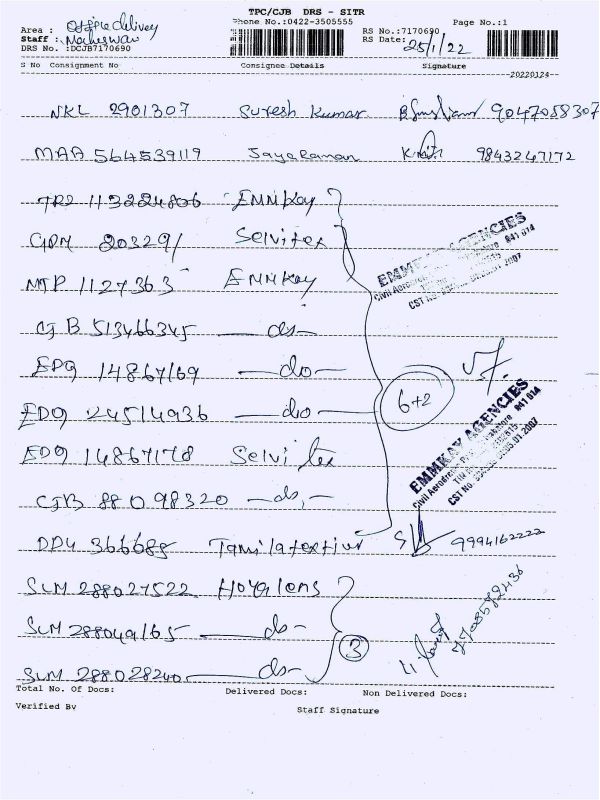 TPC/CJB DRS - SITR
Area : Office delivery Phone No.:0422-3505555 RS No.:7170690 Page No.:1
Staff : Maheswari RS Date: 25/1/22
DRS No. :DCJB7170690
S No Consignment No Consignee Details Signature
20220124
NKL 2901307 Suresh Kumar 9047058307
MAA 564539119 Jayaraman 9843247172
113224806 EMMKay
20329/ Selvitex
MTP 1127363 EMMKay
CJB 513466345 —do—
EDQ 14867169 —do—
EDQ 24514936 —do—
6+2
EDQ 14867178 Selvi tex
CJB 88098320 —do—
EMMKAY AGENCIES
Civil Aerodrome
641 014
CST No.
2007
EMMKAY AGENCIES
Civil Aerodrome
641 014
CST No.
.01.2007
DDU 366685 9994162222
SLM 288027522 Hoya lens
SLM 288049165 —do—
3
SLM 288028240 —do—
Total No. Of Docs: Delivered Docs: Non Delivered Docs:
Verified By Staff Signature